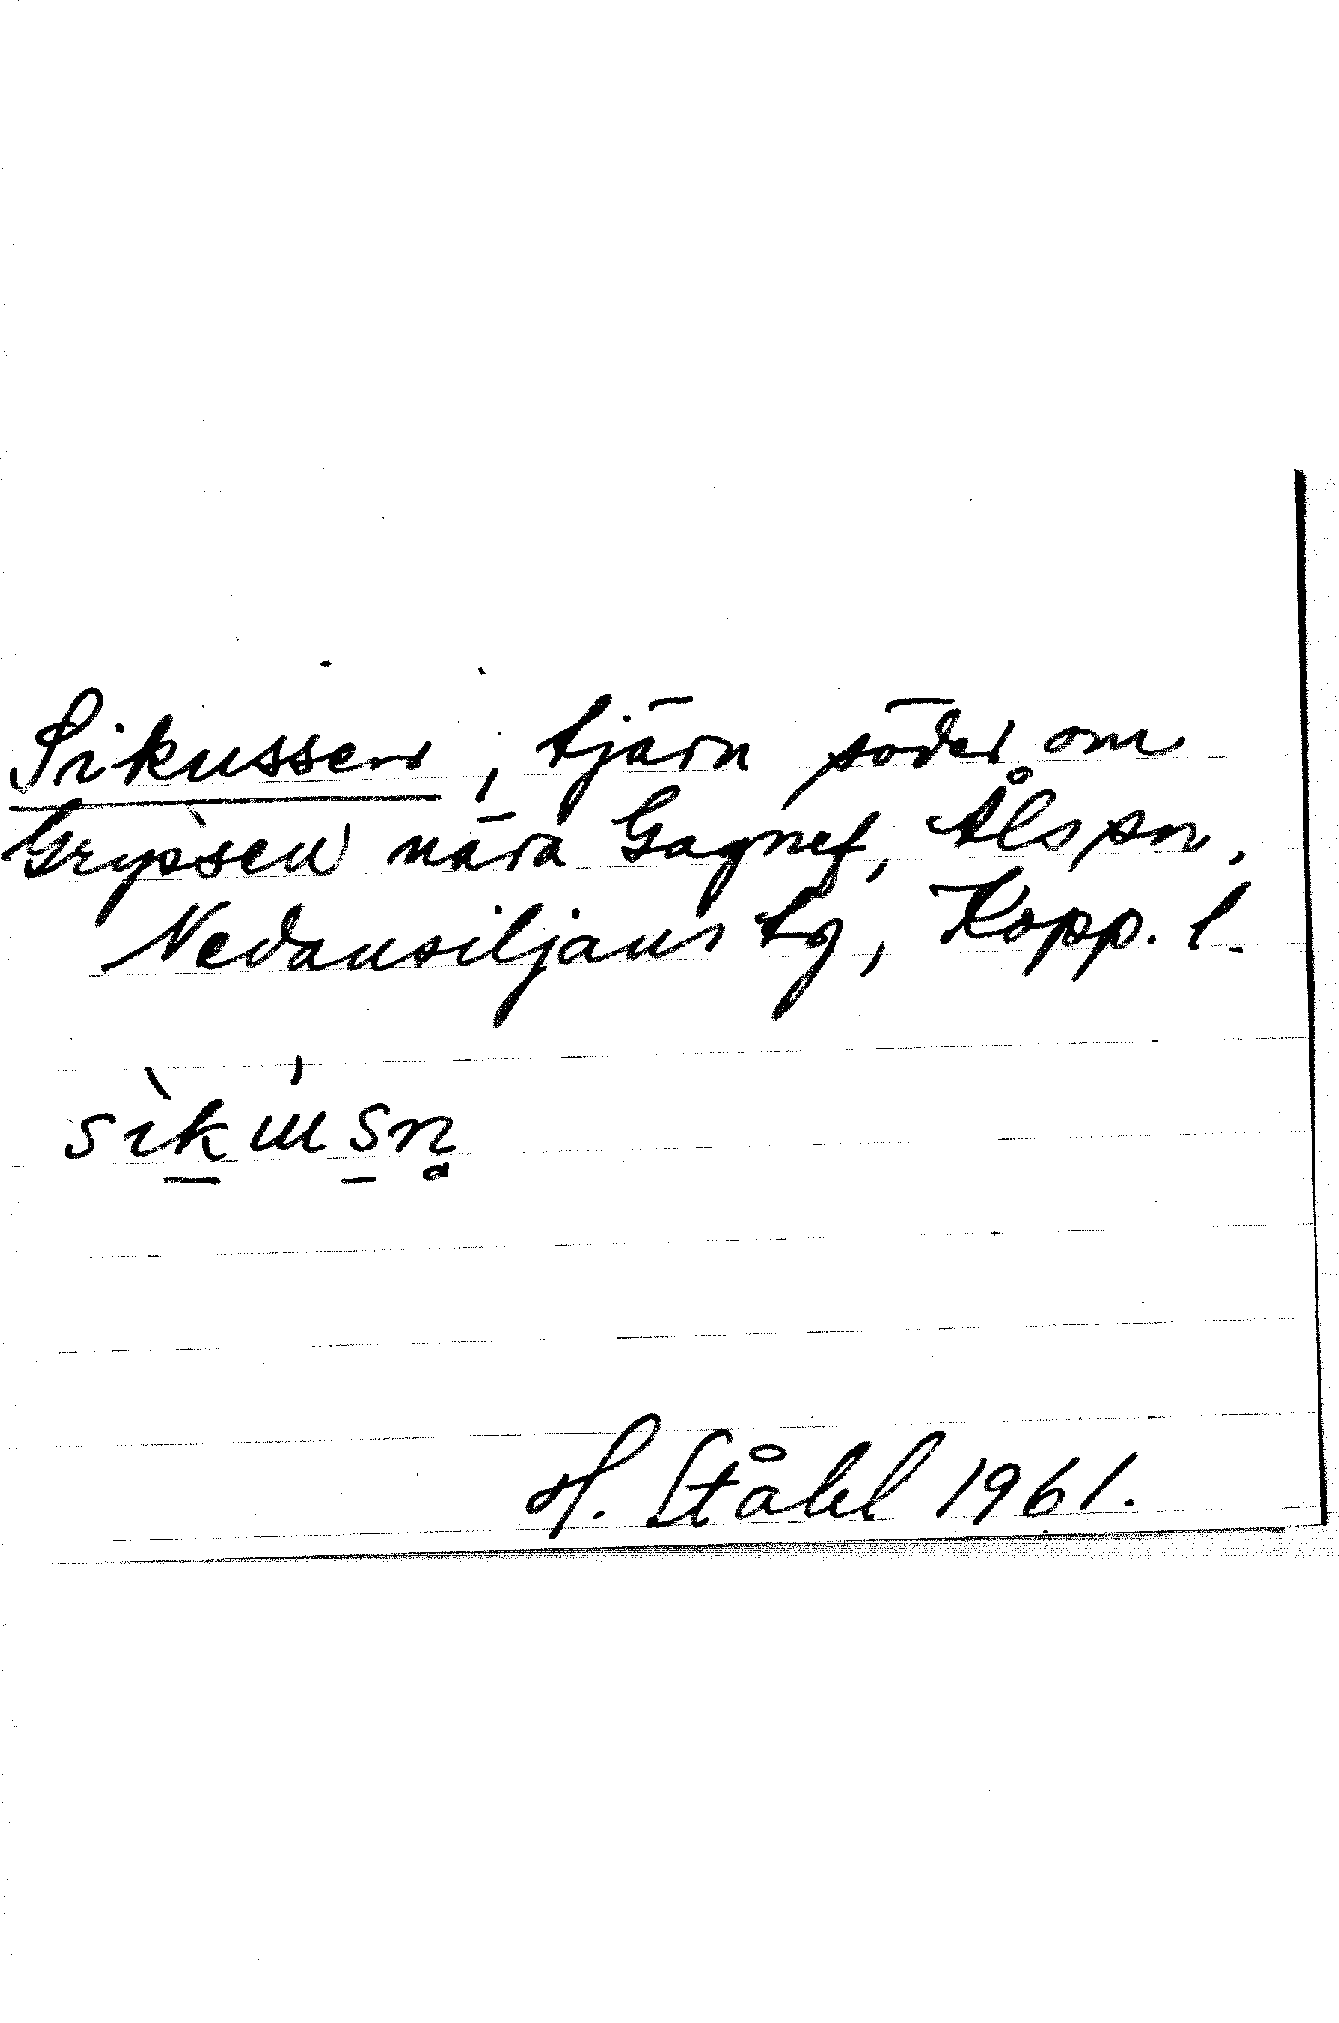 Sikussen, tjärn söder om
Grycksen nära Gagnef, Åls sn,
Nedansiljans tg, Kopp. l.
sìkɯ́sn̥
H. Ståhl 1961.